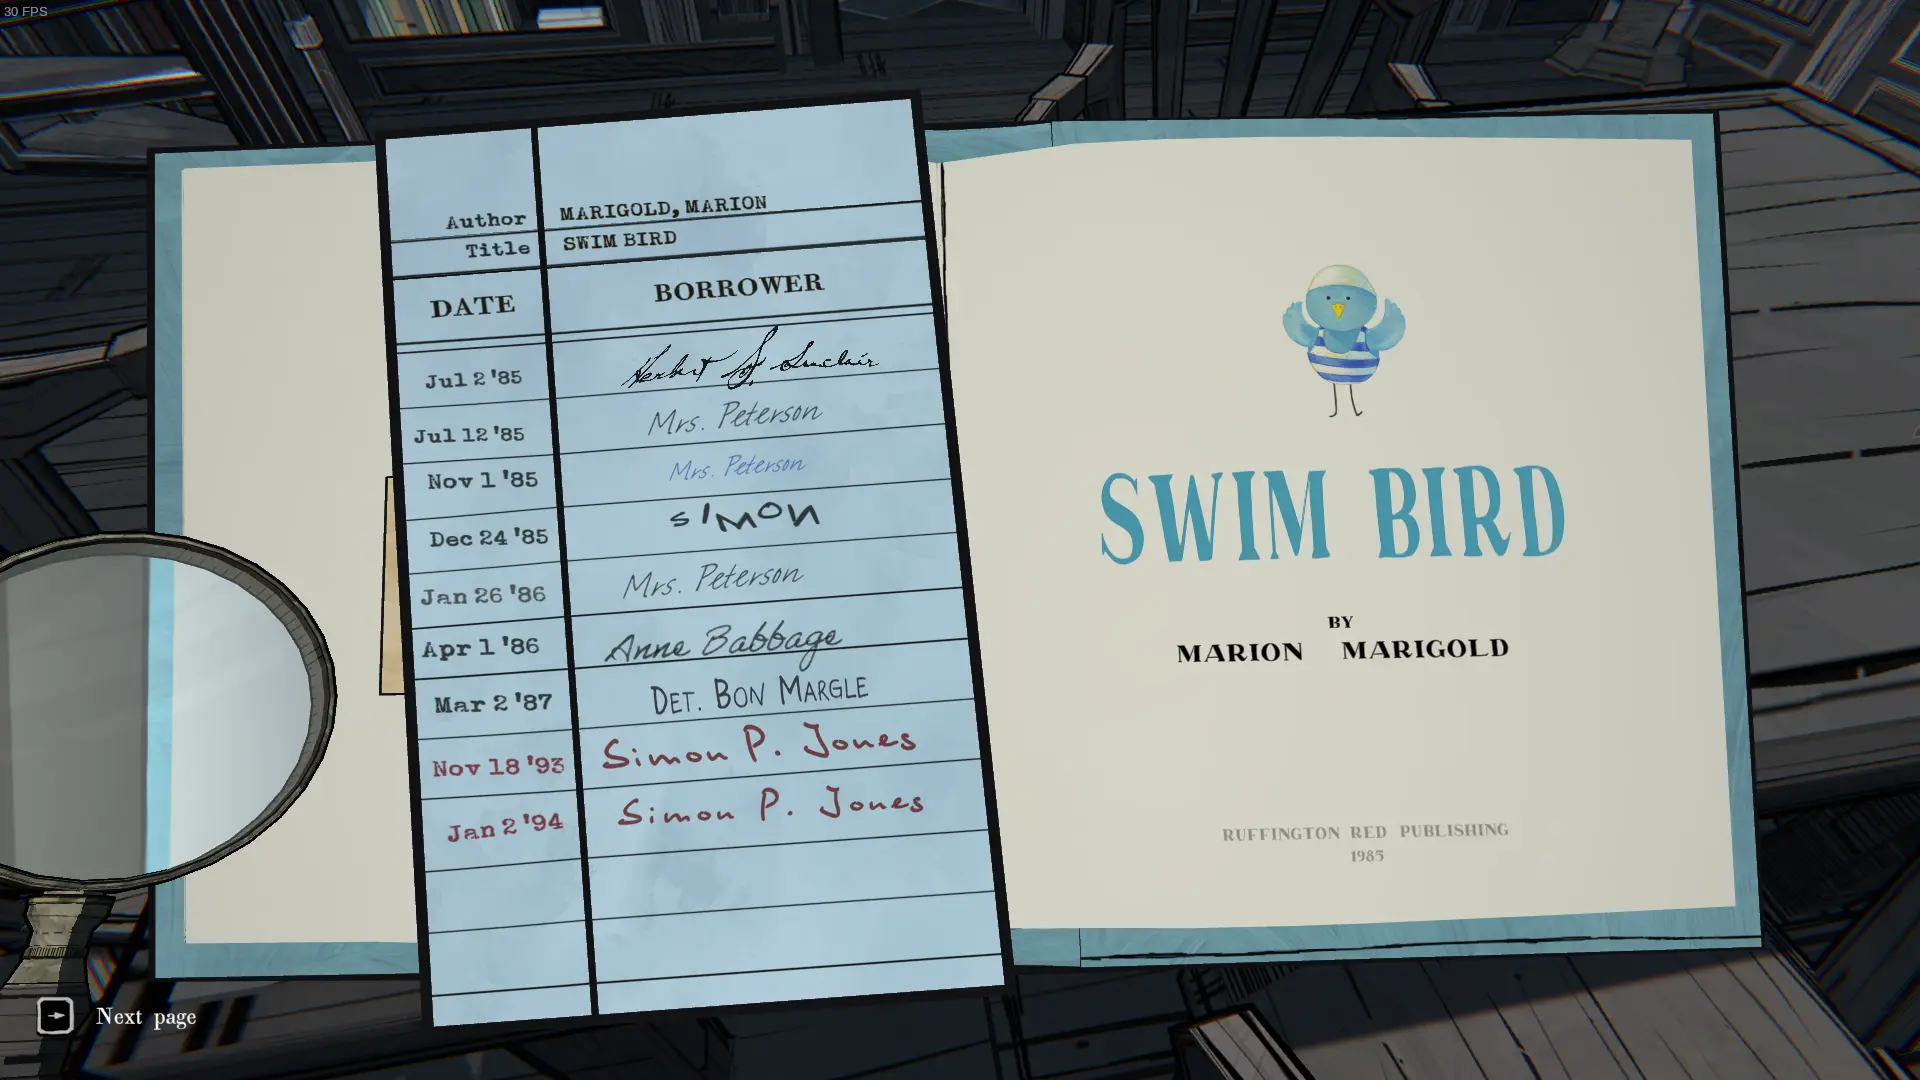 30 FPS
Author MARIGOLD, MARION
Title SWIM BIRD
DATE BORROWER
Jul 2 '85 Herbert S. Sinclair
Jul 12 '85 Mrs. Peterson
Nov 1 '85 Mrs. Peterson
Dec 24 '85 SIMON
Jan 26 '86 Mrs. Peterson
Apr 1 '86 Anne Babbage
Mar 2 '87 DET. BON MARGLE
Nov 18 '93 Simon P. Jones
Jan 2 '94 Simon P. Jones
SWIM BIRD
BY
MARION MARIGOLD
RUFFINGTON RED PUBLISHING
1985
Next page